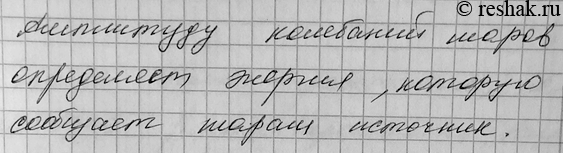 © reshak.ru
Амплитуду колебаний шаров
определяет энергия, которую
сообщает шарам источник.